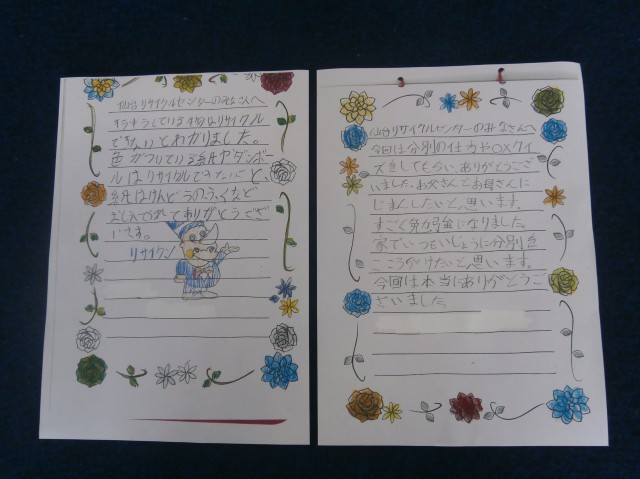 仙台リサイクルセンターのみなさんへ
キラキラしている物はリサイクル
できないとわかりました。
色がついている紙やダンボー
ルはリサイクルできないこと、
紙は
教えてくれてありがとうござ
います。
リサイクン
仙台リサイクルセンターのみなさんへ
今回は分別の仕方や○×クイ
ズをしてもらい、ありがとうござ
いました。お父さんとお母さんに
じまんしたいと思います。
すごく勉強になりました。
家でいつもいじょうに分別を
こころがけたいと思います。
今回は本当にありがとうご
ざいました